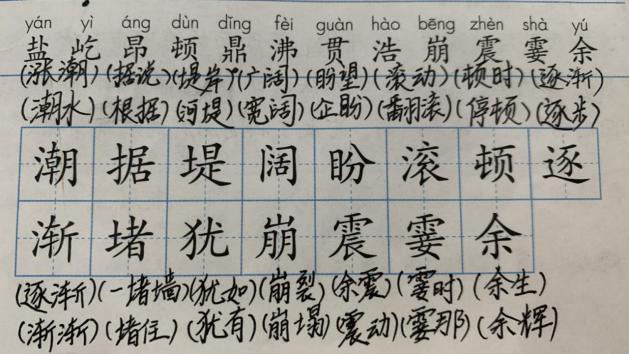 yán yì áng dùn dǐng fèi guàn hào bēng zhèn shà yú
盐 屹 昂 顿 鼎 沸 贯 浩 崩 震 霎 余
(涨潮)(据说)(堤岸)(广阔)(盼望)(滚动)(顿时)(逐渐)
(潮水)(根据)(河堤)(宽阔)(企盼)(翻滚)(停顿)(逐步)
潮 据 堤 阔 盼 滚 顿 逐
渐 堵 犹 崩 震 霎 余
(逐渐)(一堵墙)(犹如)(崩裂)(余震)(霎时)(余生)
(渐渐)(堵住)(犹有)(崩塌)(震动)(霎那)(余辉)